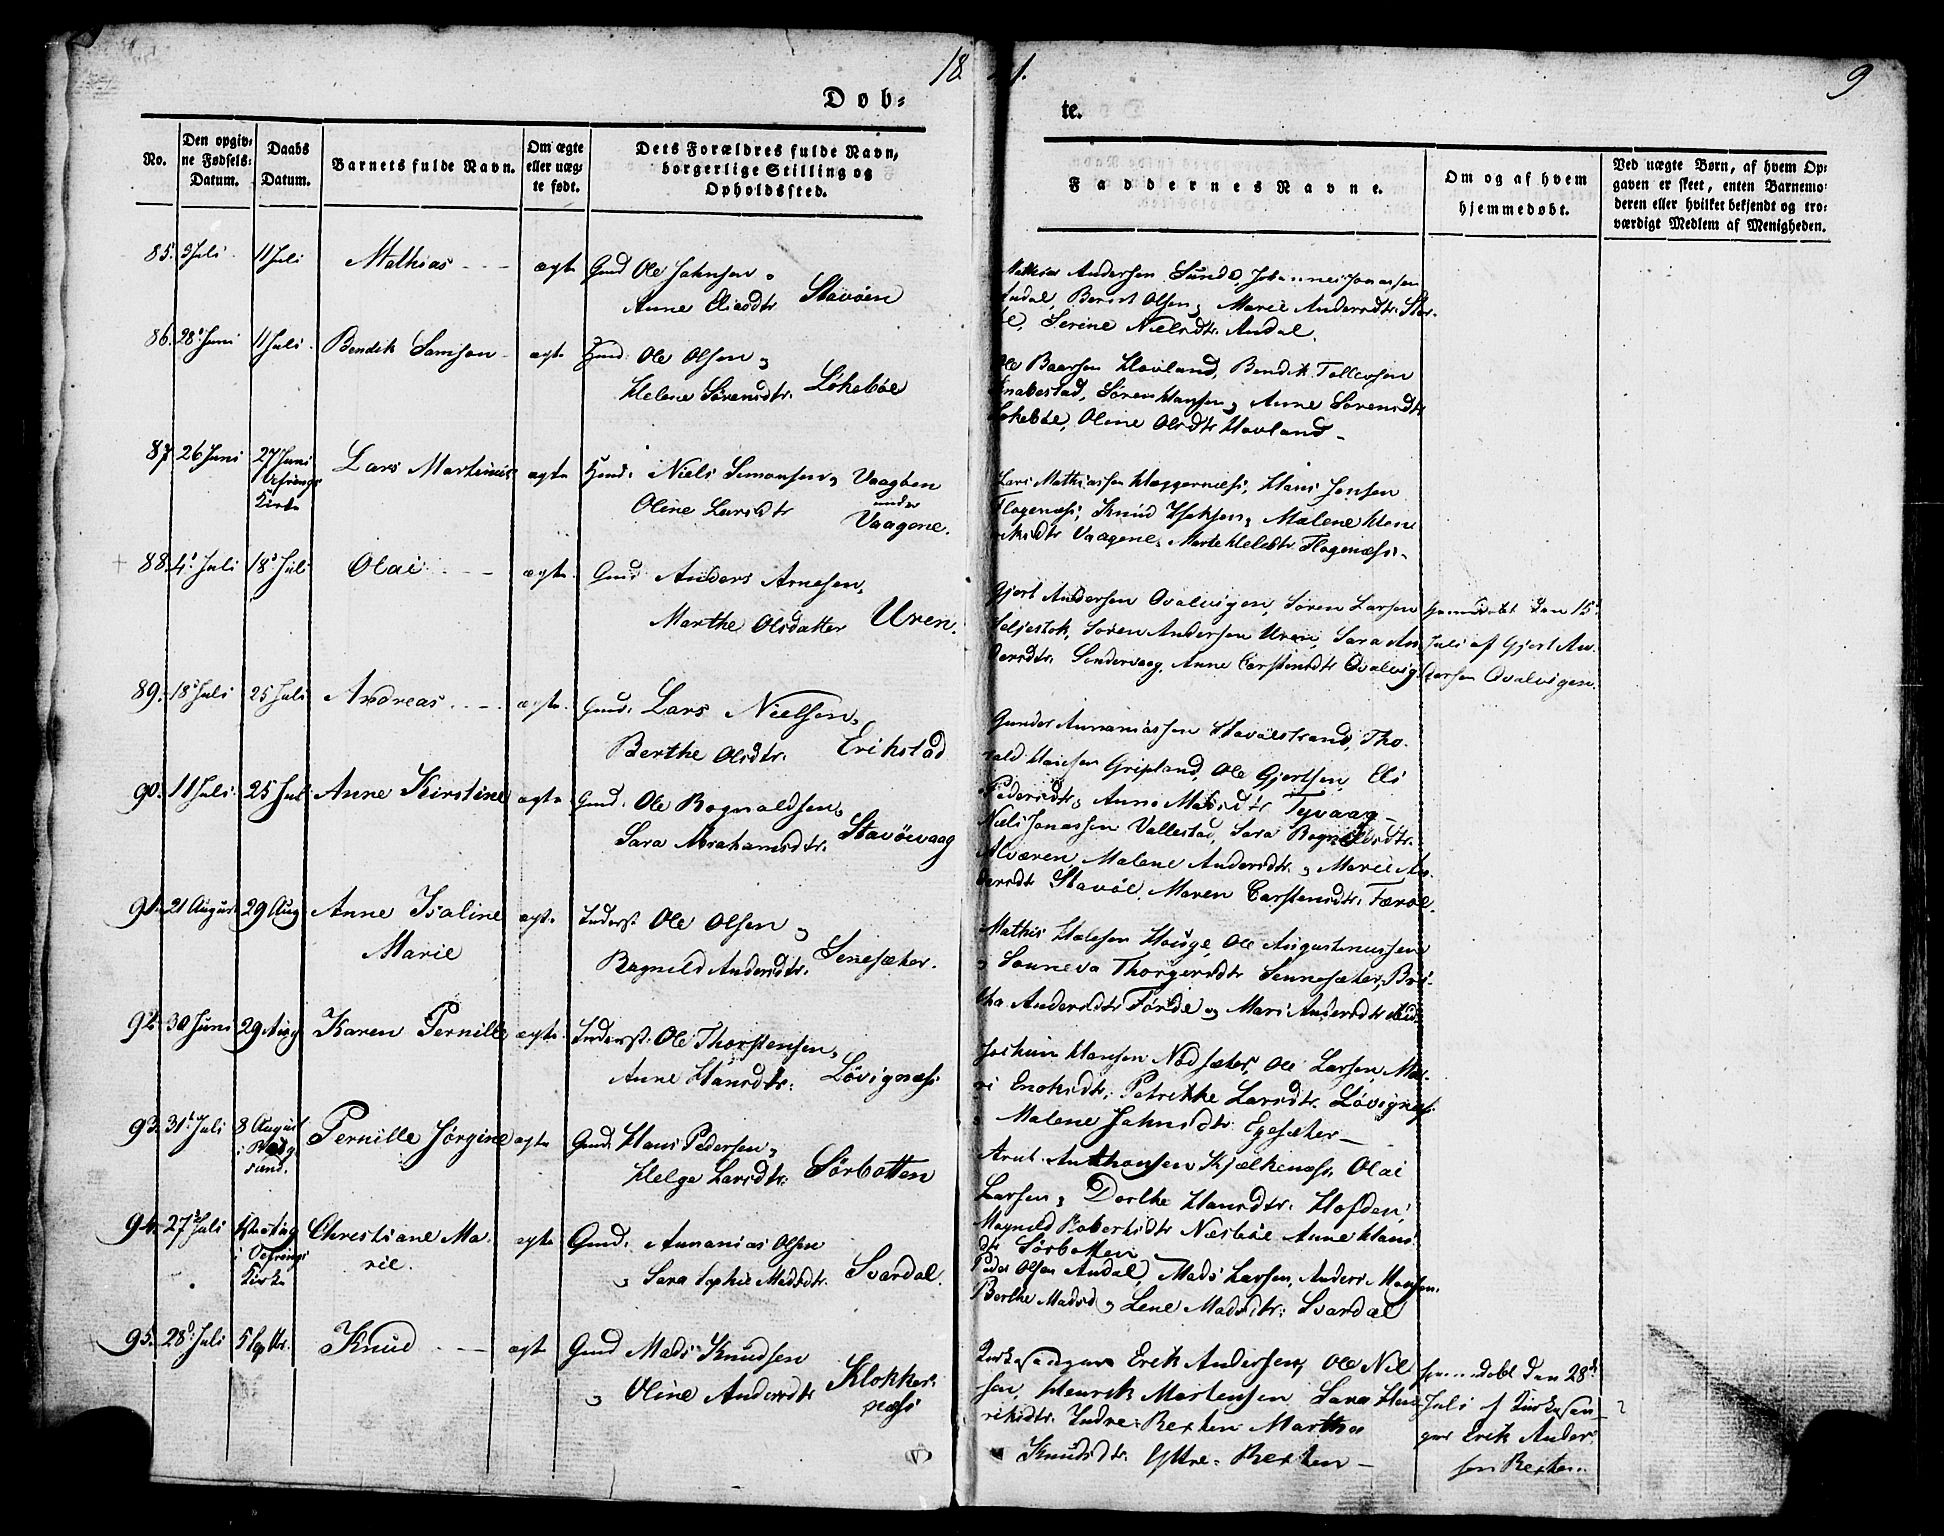 18 1. 9
Døb-
te.
No.
Den opgiv-
ne Fødsels-
Datum.
Daabs
Datum.
Barnets fulde Navn.
Om ægte
eller uæg-
te født.
Dets Forældres fulde Navn,
borgerlige Stilling og
Opholdssted.
Faddernes Navne.
Om og af hvem
hjemmedøbt.
Ved uægte Børn, af hvem Op-
gaven er skeet, enten Barnemo-
deren eller hvilket bekjendt og tro-
værdigt Medlem af Menigheden.
85. 9 Juli 11 Juli Mathias ægte Gmd Ole Johnsen
Anne Eliasdtr Stavøen
Mathias Andersen Sunde, Johannes Jonassen
Andal, Berent Olsen, Marie Andersdtr
Serine Nielsdtr. Andal.
86. 28 Juni 11 Juli Bendik Samson ægte Gmd: Ole Olsen
Helene Sørensdtr. Løkebøe
Ole Baarsen Hovland, Bendik Tollevsen
Knabestad, Søren Hansen, Anne Sørensdtr
Løkebøe, Oline Olsdtr Hovland
87 26 Juni 27 Juni
Kirke
Lars Martinus ægte Huusd: Niels Simonsen Vaagben
under
Oline Larsdtr Vaagene.
Lars Mathiassen Hæggernæss, Hans Jensen
Flogenæss, Knud Isaksen, Malene Hen
riksdtr Vaagene, Flogenæss
88. 4 Juli 18 Juli Olai ægte Gmd Anders Arnesen,
Marthe Olsdatter Uren.
Gjert Andersen Qvalvigen, Søren Larsen
Seljestok, Søren Andersen Uren, Sara An-
dersdtr. Søndervaag, Anne Carstensdtr Qvalvig
hjemmedøbt den 15
Juli af Gjert An-
dersen Qvalvigen.
89. 18 Juli 25 Juli Andreas ægte Gmd: Lars Nielsen,
Berthe Olsdtr. Erikstad
Gunder Annaniassen Stavøstrand, Tho-
rald Hansen Gripland, Ole Gjertsen, Eli
Pedersdtr, Anne Madsdtr Tyvaag
90. 11 Juli 25 Juli Anne Kirstine ægte Gmd: Ole Rognaldsen,
Sara Abrahamsdtr. Stavøevaag
Niels Jonassen Vallestad, Sara Rognaldsdtr.
Alværen, Malene Andersdtr. Marie An-
dersdtr Stavøe, Maren Carstensdtr. Færøe.
91. 21 August 29 Aug Anne Isaline
Marie
ægte Inderst Ole Olsen
Ragnild Andersdtr. Senesæter.
Mathis Halvsen Houge, Ole Augustinussen
Sønneva Thorgersdtr Sennesæter, Bri-
tha Andersdtr Førde, Mari Andersdtr
92. 30 Juni 29 Aug Karen Pernille ægte Inderst: Ole Thorstensen,
Anne Hansdtr. Løvignæss
Jochum Hansen Nødsæter, Ole Larsen, Ma-
ri Enoksdtr. Petrikke Larsdtr. Løvignæss
Malene Johnsdtr. Egesæter
93. 31 Juli 8 August
i
Pernille Jørgine ægte Gmd. Hans Pedersen
Helge Larsdtr. Sørbotten
Arnt Anthonsen Kjelkenæss, Olai
Larsen, Dorthe Hansdtr. Hofden,
Magnild Robertsdtr Næsbøe Anne Hans
dtr Sørbotten
94. 27 Juli
i
Kirke
Christiane Ma-
rie.
ægte Gmd. Annanias Olsen
Sara Sophie Madsdtr. Svardal.
Peder Olsen Andal, Mads Larsen, Anders Monsen.
Berthe Madsd Lene Madsdtr. Svardal
95. 28 Juli 5 Septbr. Knud ægte Gmd Mads Knudsen
Oline Andersdtr Klokker-
næss
Kirkesanger Erik Andersen, Ole Niel
sen, Henrik Mortensen, Sara Hen
riksdtr. Indre-Rexten Marthe
Knudsdtr. Yttre-Rexten
hjemmedøbt den 28
Juli af Kirkesan-
ger Erik Ander-
sen Rexten.